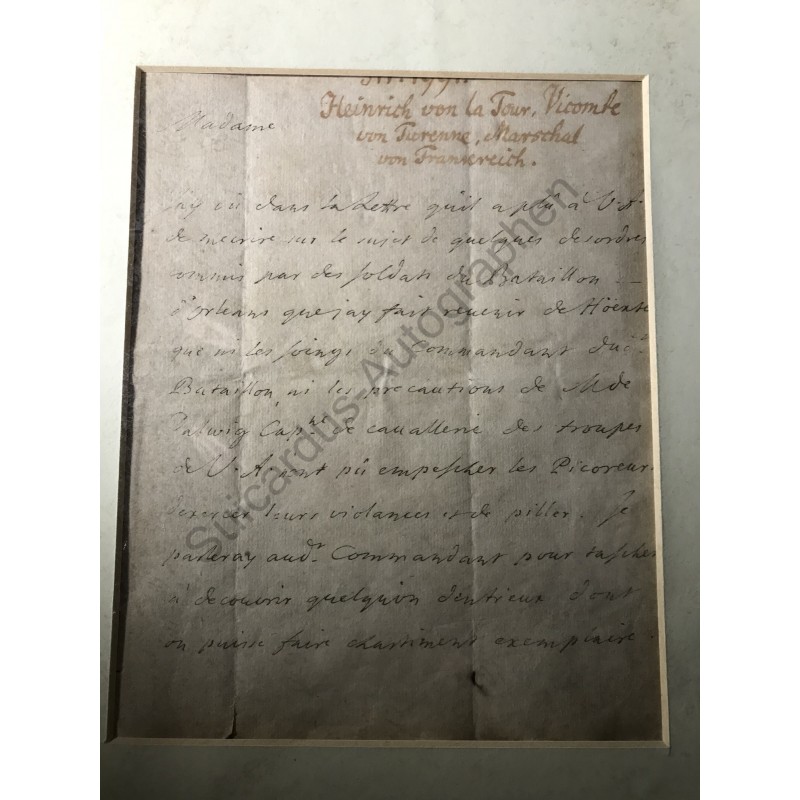 Heinrich von la Tour, Vicomte
von Turenne, Marschal
von Frankreich.
Madame
J'ay vû dans la Lettre qu'il a plû à V. A.
de m'ecrire sur le sujet de quelques desordres
commis par des soldats du Bataillon
d'Orleans que j'ay fait revenir de
que ni les soings du Commandant dud.t
Bataillon, ni les precautions de M de
Dalwig Cap.ne de cauallerie des troupes
de V. A. ont pû empescher les Picoreurs
d'exercer leurs violances et de piller. Je
parleray aud.t Commandant pour tascher
à decouvrir quelqu'un d'entreux dont
on puisse faire chastiment exemplaire.
Suicardus-Autographen